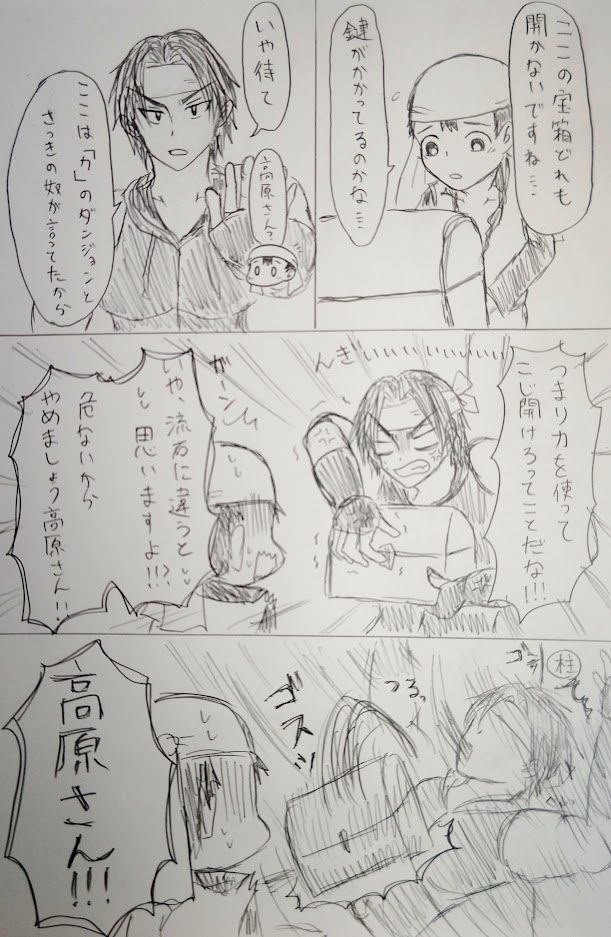 ここの宝箱どれも
開かないですね…
鍵がかかってるのかな…
いや待て
高原さん?
ここは「力」のダンジョンと
さっきの奴が言ってたから
つまり力を使って
こじ開けろってことだな!!!
んぎぃぃぃぃぃ
ガーン
いや、流石に違うと
思いますよ!!?
危ないから
やめましょう高原さん!!
柱
ゴッ
つるっ
ゴスッ
高原さん!!!